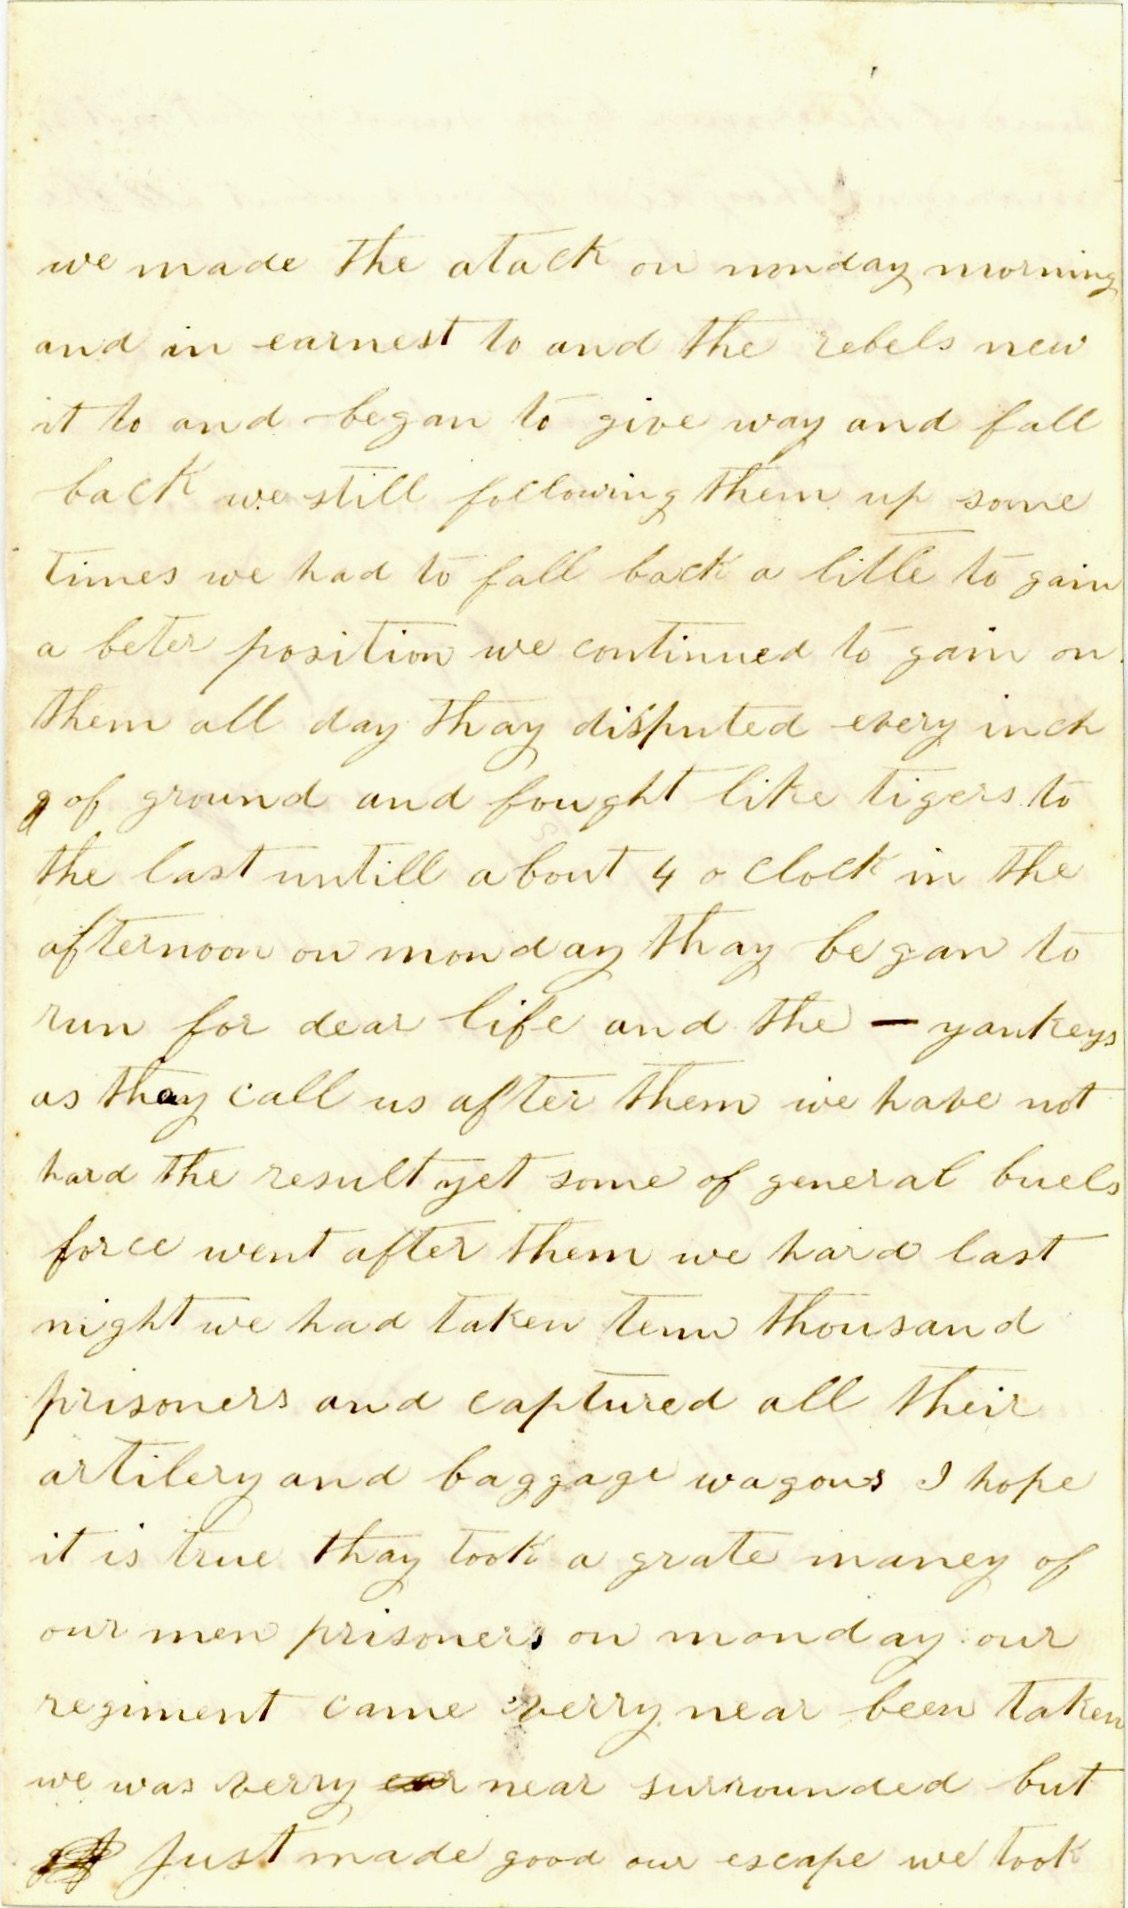 we made the atack on monday morning
and in earnest to and the rebels new
it to and began to give way and fall
back we still following them up some
times we had to fall back a little to gain
a beter position we continued to gain on
them all day thay disputed every inch
of ground and fought like tigers to
the last untill about 4 o clock in the
afternoon on monday thay began to
run for dear life and the — yankeys
as thay call us after them we have not
hard the result yet some of general buels
force went after them we hard last
night we had taken tenn thousand
prisoners and captured all their
artilery and baggage wagons I hope
it is true thay took a grate maney of
our men prisoners on monday our
regiment came verry near been taken
we was verry near surrounded but
Just made good our escape we took